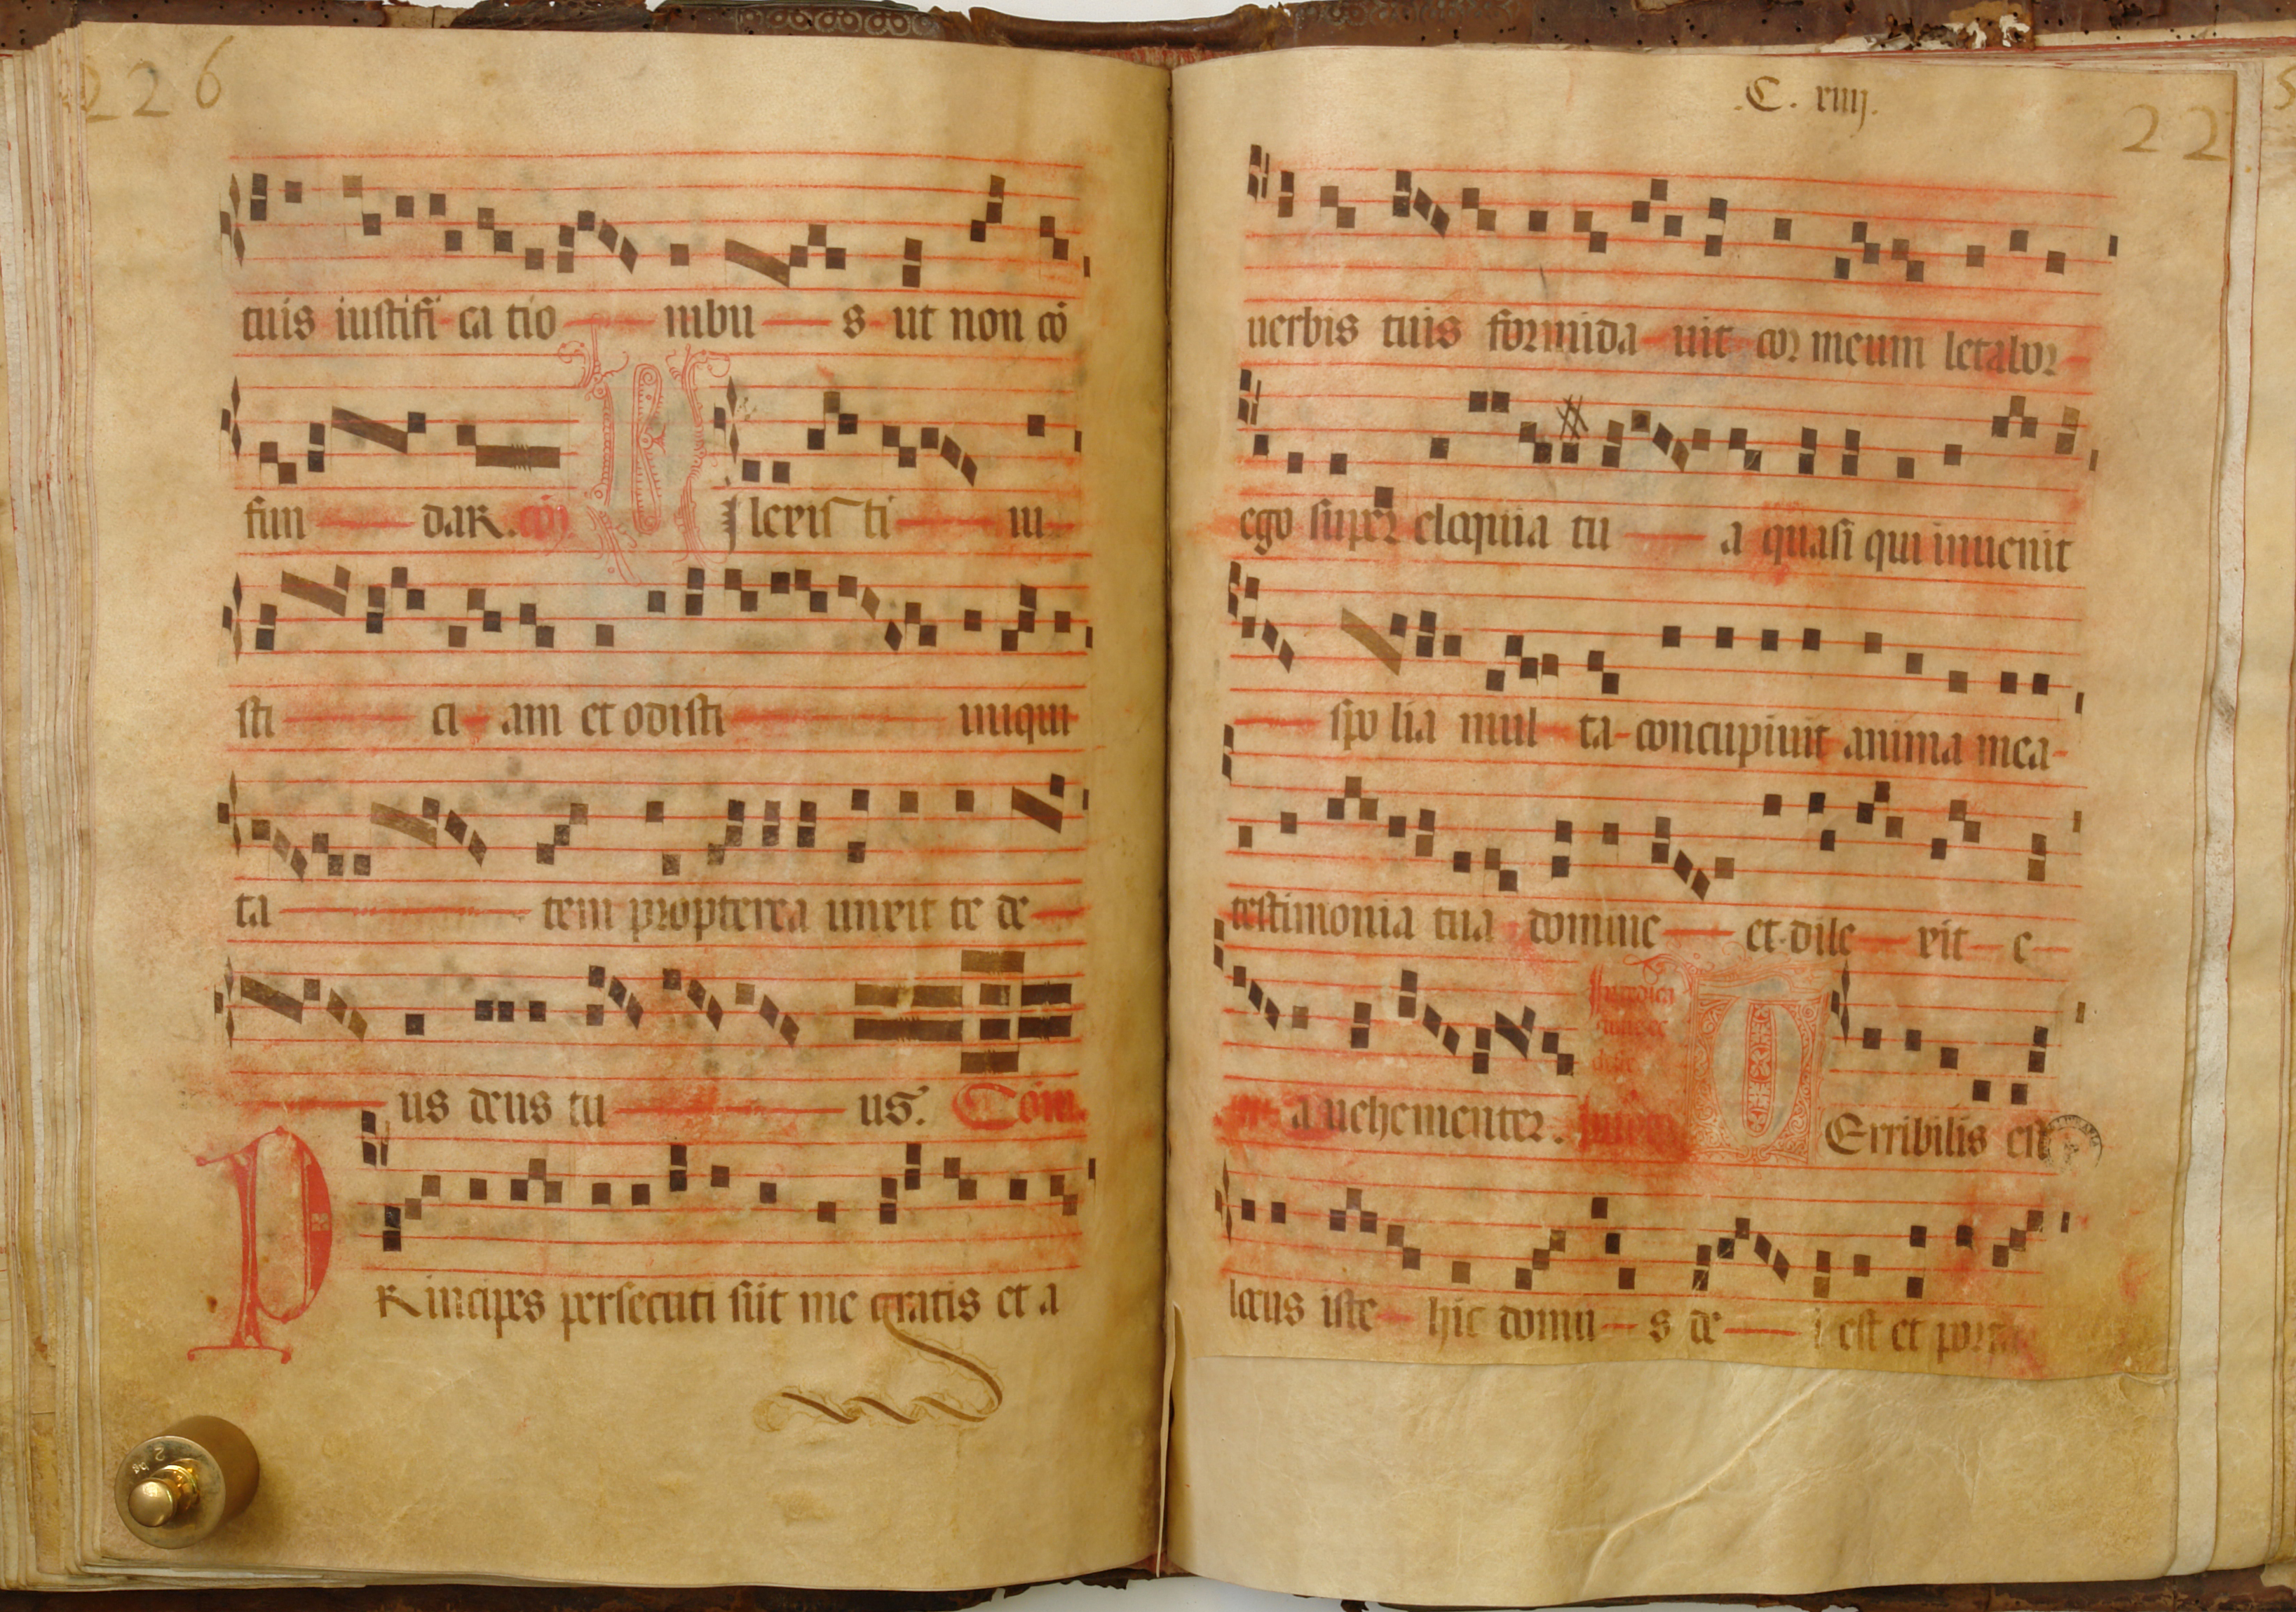 226
tuis iustifi ca tio nibu s ut non cō
fun daʀ. cōi D Ilexis ti iu
sti ci am et odisti iniqui
ta tem propterea unxit te de
us deus tu us. Com
P Rincipes persecuti sūt me gratis et a
.C. xiiij.
22
uerbis tuis formida uit cor meum letabor
ego super eloquia tu a quasi qui inuenit
spo lia mul ta concupiuit anima mea
testimonia tua domine et dile xit e
a uehementer. In dedica T Erribilis est
locus iste hic domu s de i est et porta